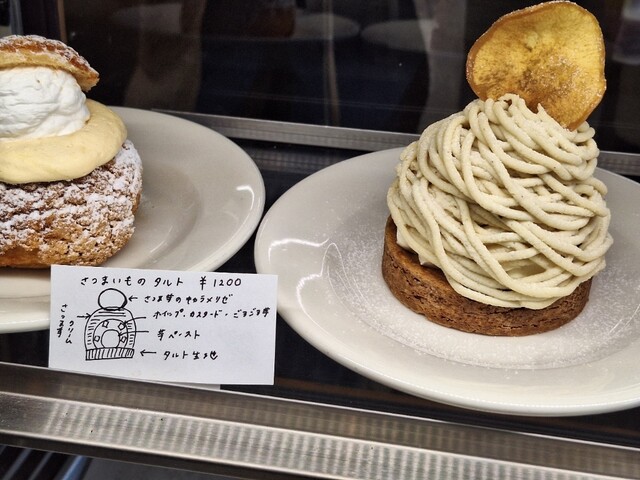 さつまいものタルト ¥1200
さつま芋のキャラメリゼ
ホイップ・カスタード・ごろごろ芋
さつま芋クリーム
芋ペースト
タルト生地